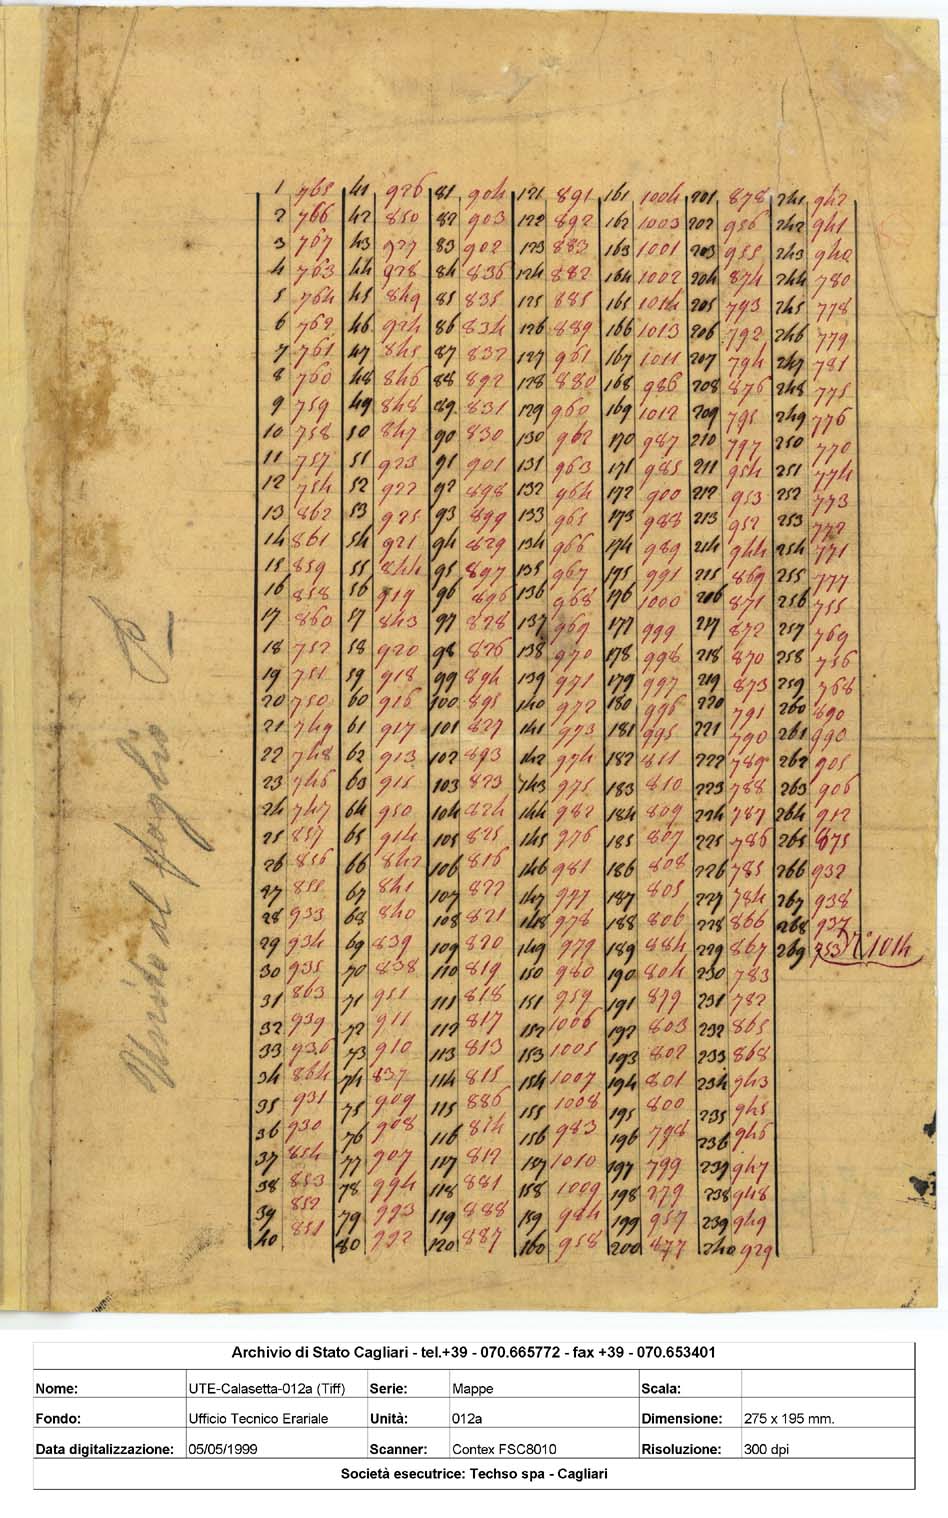 1 765 41 926 81 904 121 891 161 1004 201 878 241 942
2 766 42 850 82 903 122 892 162 1003 202 956 242 941
3 767 43 927 83 902 123 883 163 1001 203 955 243 940
4 763 44 928 84 836 124 882 164 1002 204 874 244 780
5 764 45 849 85 835 125 885 165 1014 205 793 245 778
6 762 46 924 86 834 126 889 166 1013 206 792 246 779
7 761 47 845 87 832 127 961 167 1011 207 794 247 781
8 760 48 846 88 892 128 880 168 986 208 876 248 775
9 759 49 848 89 831 129 960 169 1012 209 795 249 776
10 758 50 847 90 830 130 962 170 987 210 797 250 770
11 757 51 923 91 901 131 963 171 985 211 954 251 774
12 754 52 922 92 898 132 964 172 900 212 953 252 773
13 862 53 925 93 899 133 965 173 988 213 952 253 772
14 861 54 921 94 829 134 966 174 989 214 944 254 771
15 859 55 844 95 897 135 967 175 991 215 869 255 777
16 858 56 919 96 896 136 968 176 1000 216 871 256 755
17 860 57 843 97 828 137 969 177 999 217 872 257 769
18 752 58 920 98 826 138 970 178 998 218 870 258 756
19 751 59 918 99 894 139 971 179 997 219 873 259 768
20 750 60 916 100 895 140 972 180 996 220 791 260 890
21 749 61 917 101 827 141 973 181 995 221 790 261 990
22 748 62 913 102 893 142 974 182 811 222 789 262 905
23 746 63 915 103 823 143 975 183 810 223 788 263 906
24 747 64 950 104 824 144 982 184 809 224 787 264 912
25 857 65 914 105 825 145 976 185 807 225 786 265 875
26 856 66 842 106 816 146 981 186 808 226 785 266 932
27 855 67 841 107 822 147 977 187 805 227 784 267 938
28 933 68 840 108 821 148 978 188 806 228 866 268 937
29 934 69 839 109 820 149 979 189 884 229 867 269 753 N° 1014
30 935 70 838 110 819 150 980 190 804 230 783
31 863 71 951 111 818 151 959 191 879 231 782
32 939 72 911 112 817 152 1006 192 803 232 865
33 936 73 910 113 813 153 1005 193 802 233 868
34 864 74 837 114 815 154 1007 194 801 234 943
35 931 75 909 115 886 155 1008 195 800 235 945
36 930 76 908 116 814 156 983 196 798 236 946
37 854 77 907 117 812 157 1010 197 799 237 947
38 853 78 994 118 881 158 1009 198 279 238 948
39 852 79 993 119 888 159 984 199 957 239 949
40 851 80 992 120 887 160 958 200 877 240 929
Unito al foglio
Archivio di Stato Cagliari - tel.+39 - 070.665772 - fax +39 - 070.653401
Nome: UTE-Calasetta-012a (Tiff) Serie: Mappe Scala:
Fondo: Ufficio Tecnico Erariale Unità: 012a Dimensione: 275 x 195 mm.
Data digitalizzazione: 05/05/1999 Scanner: Contex FSC8010 Risoluzione: 300 dpi
Società esecutrice: Techso spa - Cagliari